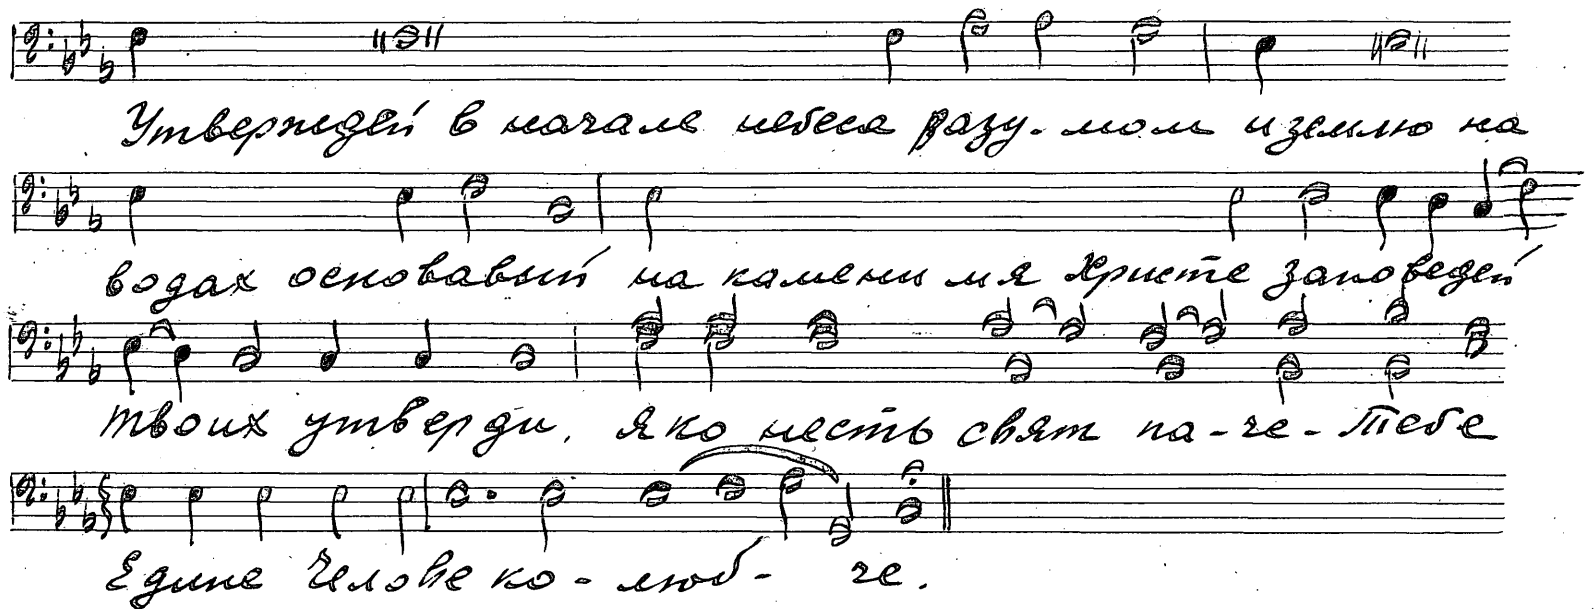 Утверждей в начале небеса разу-мом и землю на
водах основавый на камени мя Христе заповедей
твоих утверди. Яко несть свят па-че-Тебе
Едине Человеко-люб-че.